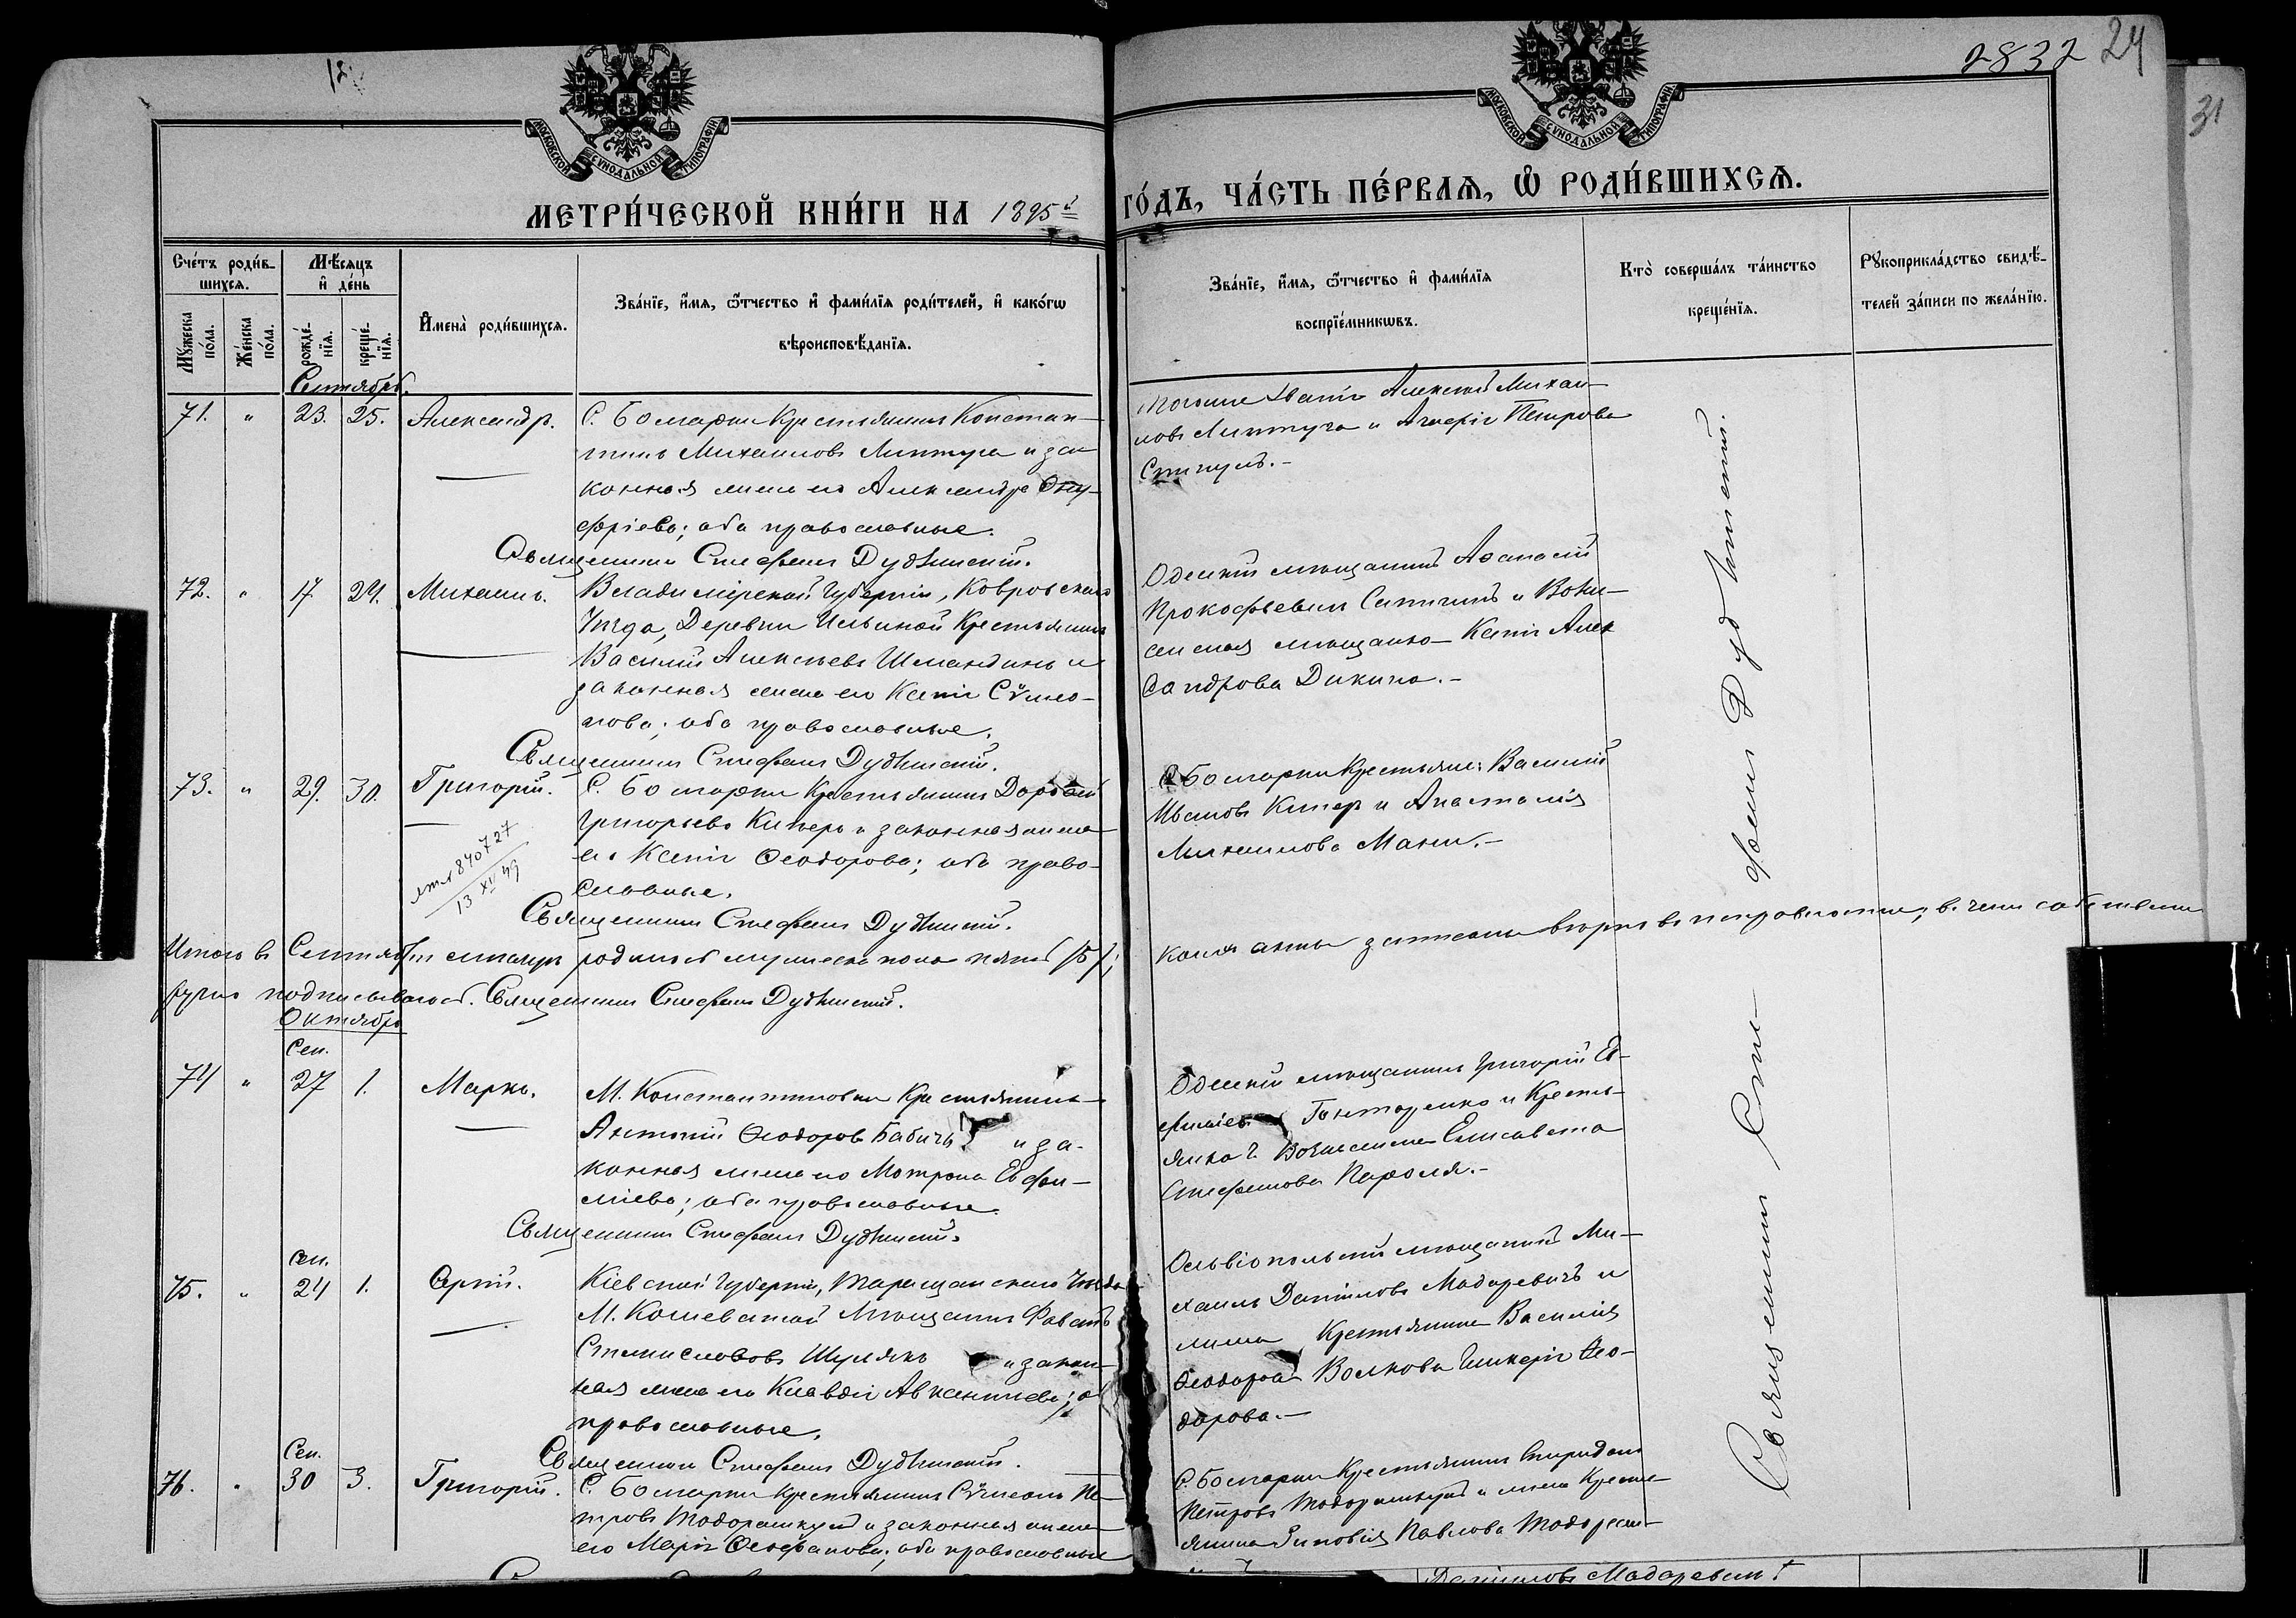 2832 24
31
МОСКОВСКОЙ СѴНОДАЛЬНОЙ ТИПОГРАФІИ
МОСКОВСКОЙ СѴНОДАЛЬНОЙ ТИПОГРАФІИ
МЕТРИ́ЧЕСКОЙ КНИ́ГИ НА 1895й
ГО́ДЪ, ЧА́СТЬ ПЕ́РВАѦ, Ѡ҆ РОДИ́ВШИХСѦ.
Сче́тъ роди́в-
шихсѧ.
Мѣ́сѧцъ
и҆ де́нь
Мꙋ́жеска по́ла.
Же́нска по́ла.
рожде́-
нїѧ.
креще́-
нїѧ.
И҆мена̀ роди́вшихсѧ.
Зва́нїе, и҆́мѧ, ѻ҆́тчество и҆ фами́лїѧ роди́телей, и҆ како́гѡ
вѣроисповѣ́данїѧ.
Зва́нїе, и҆́мѧ, ѻ҆́тчество и҆ фами́лїѧ
воспрїе́мникѡвъ.
Кто̀ соверша́лъ та́инство
креще́нїѧ.
Рꙋкоприкла́дство свидѣ́-
телей за́писи по жела́нїю.
Сентябрь.
71. " 23. 25. Александръ. С. Болгарки Крестьянинъ Констан-
тинъ Михаиловъ Липтуга и за-
конная жена его Александра Ону-
фріева; оба православные.
Священникъ Стефанъ Дудкинскій.
Алексѣй Михаи-
ловъ Липтуга и Агафія Петрова
72. " 17 24. Михаилъ. Владимірской Губерніи, Ковровскаго
Уѣзда, Деревни Ильиной Крестьянинъ
Василій Алексѣевъ Шмандинъ и
законная жена его Ксенія Сѵмео-
нова; оба православные.
Священникъ Стефанъ Дудкинскій.
Одесскій мѣщанинъ Аѳанасій
Прокофьевичъ Ситинъ и Возне-
сенская мѣщанка Ксенія Алек
сандрова Дикина.-
73. " 29. 30. Григорій. С. Болгарки Крестьянинъ Дороѳей
Григорьевъ Киперъ и законная жена
его Ксенія Ѳеодорова; оба право-
славные.
Священникъ Стефанъ Дудкинскій.
840727
13 XII 49
С. Болгарки Крестьяне: Василій
Ивановъ Киперъ и Анастасія
Михаилова Мани.-
Итого въ Сентябрѣ мѣсяцѣ родилось мужеска пола пять (5);
коихъ акты записаны вѣрно въ чемъ собственно
ручно подписываюсь. Священникъ Стефанъ Дудкинскій.
Октябрь
Сен.
74 " 27 1. Маркъ. М. Константиновки Крестьянинъ
Антоній Ѳеодоровъ Бабичъ и за-
конная жена его Мотрона Евфи-
міева; оба православные.
Священникъ Стефанъ Дудкинскій.
Одесскій мѣщанинъ Григорій Ев-
фиміевъ Гонтаренко и Кресть-
янка г. Вознесенска Елисавета
Стефанова Пароля.-
Сен.
75. " 24 1. Сергій. Кіевской Губерніи, Таращанскаго Уѣзда
М. Кошеватой Мѣщанинъ
Станиславовъ Шулякъ и закон-
ная жена его Клавдія Авксентіева; об
православные.
Священникъ Стефанъ Дудкинскій.
Ольвіопольскій мѣщанинъ Ми-
хаилъ Даніиловъ Мадаревичъ и
жена Крестьянина Василія
Ѳеодорова Волкова Гликерія Ѳео-
дорова.-
Сен.
76. " 30 3. Григорій. С. Болгарки Крестьянинъ Сѵмеонъ Пе-
тровъ Тодорашкулъ и законная жена
его Марія Ѳеофанова; оба православные
С. Болгарки Крестьянинъ Спиридонъ
Петровъ Тодорашкулъ и жена Кресть-
янина Зиновія Павлова Тодораш-
Священникъ Сте-
фанъ Дудкинскій.
Даніиловъ Мадаревичъ